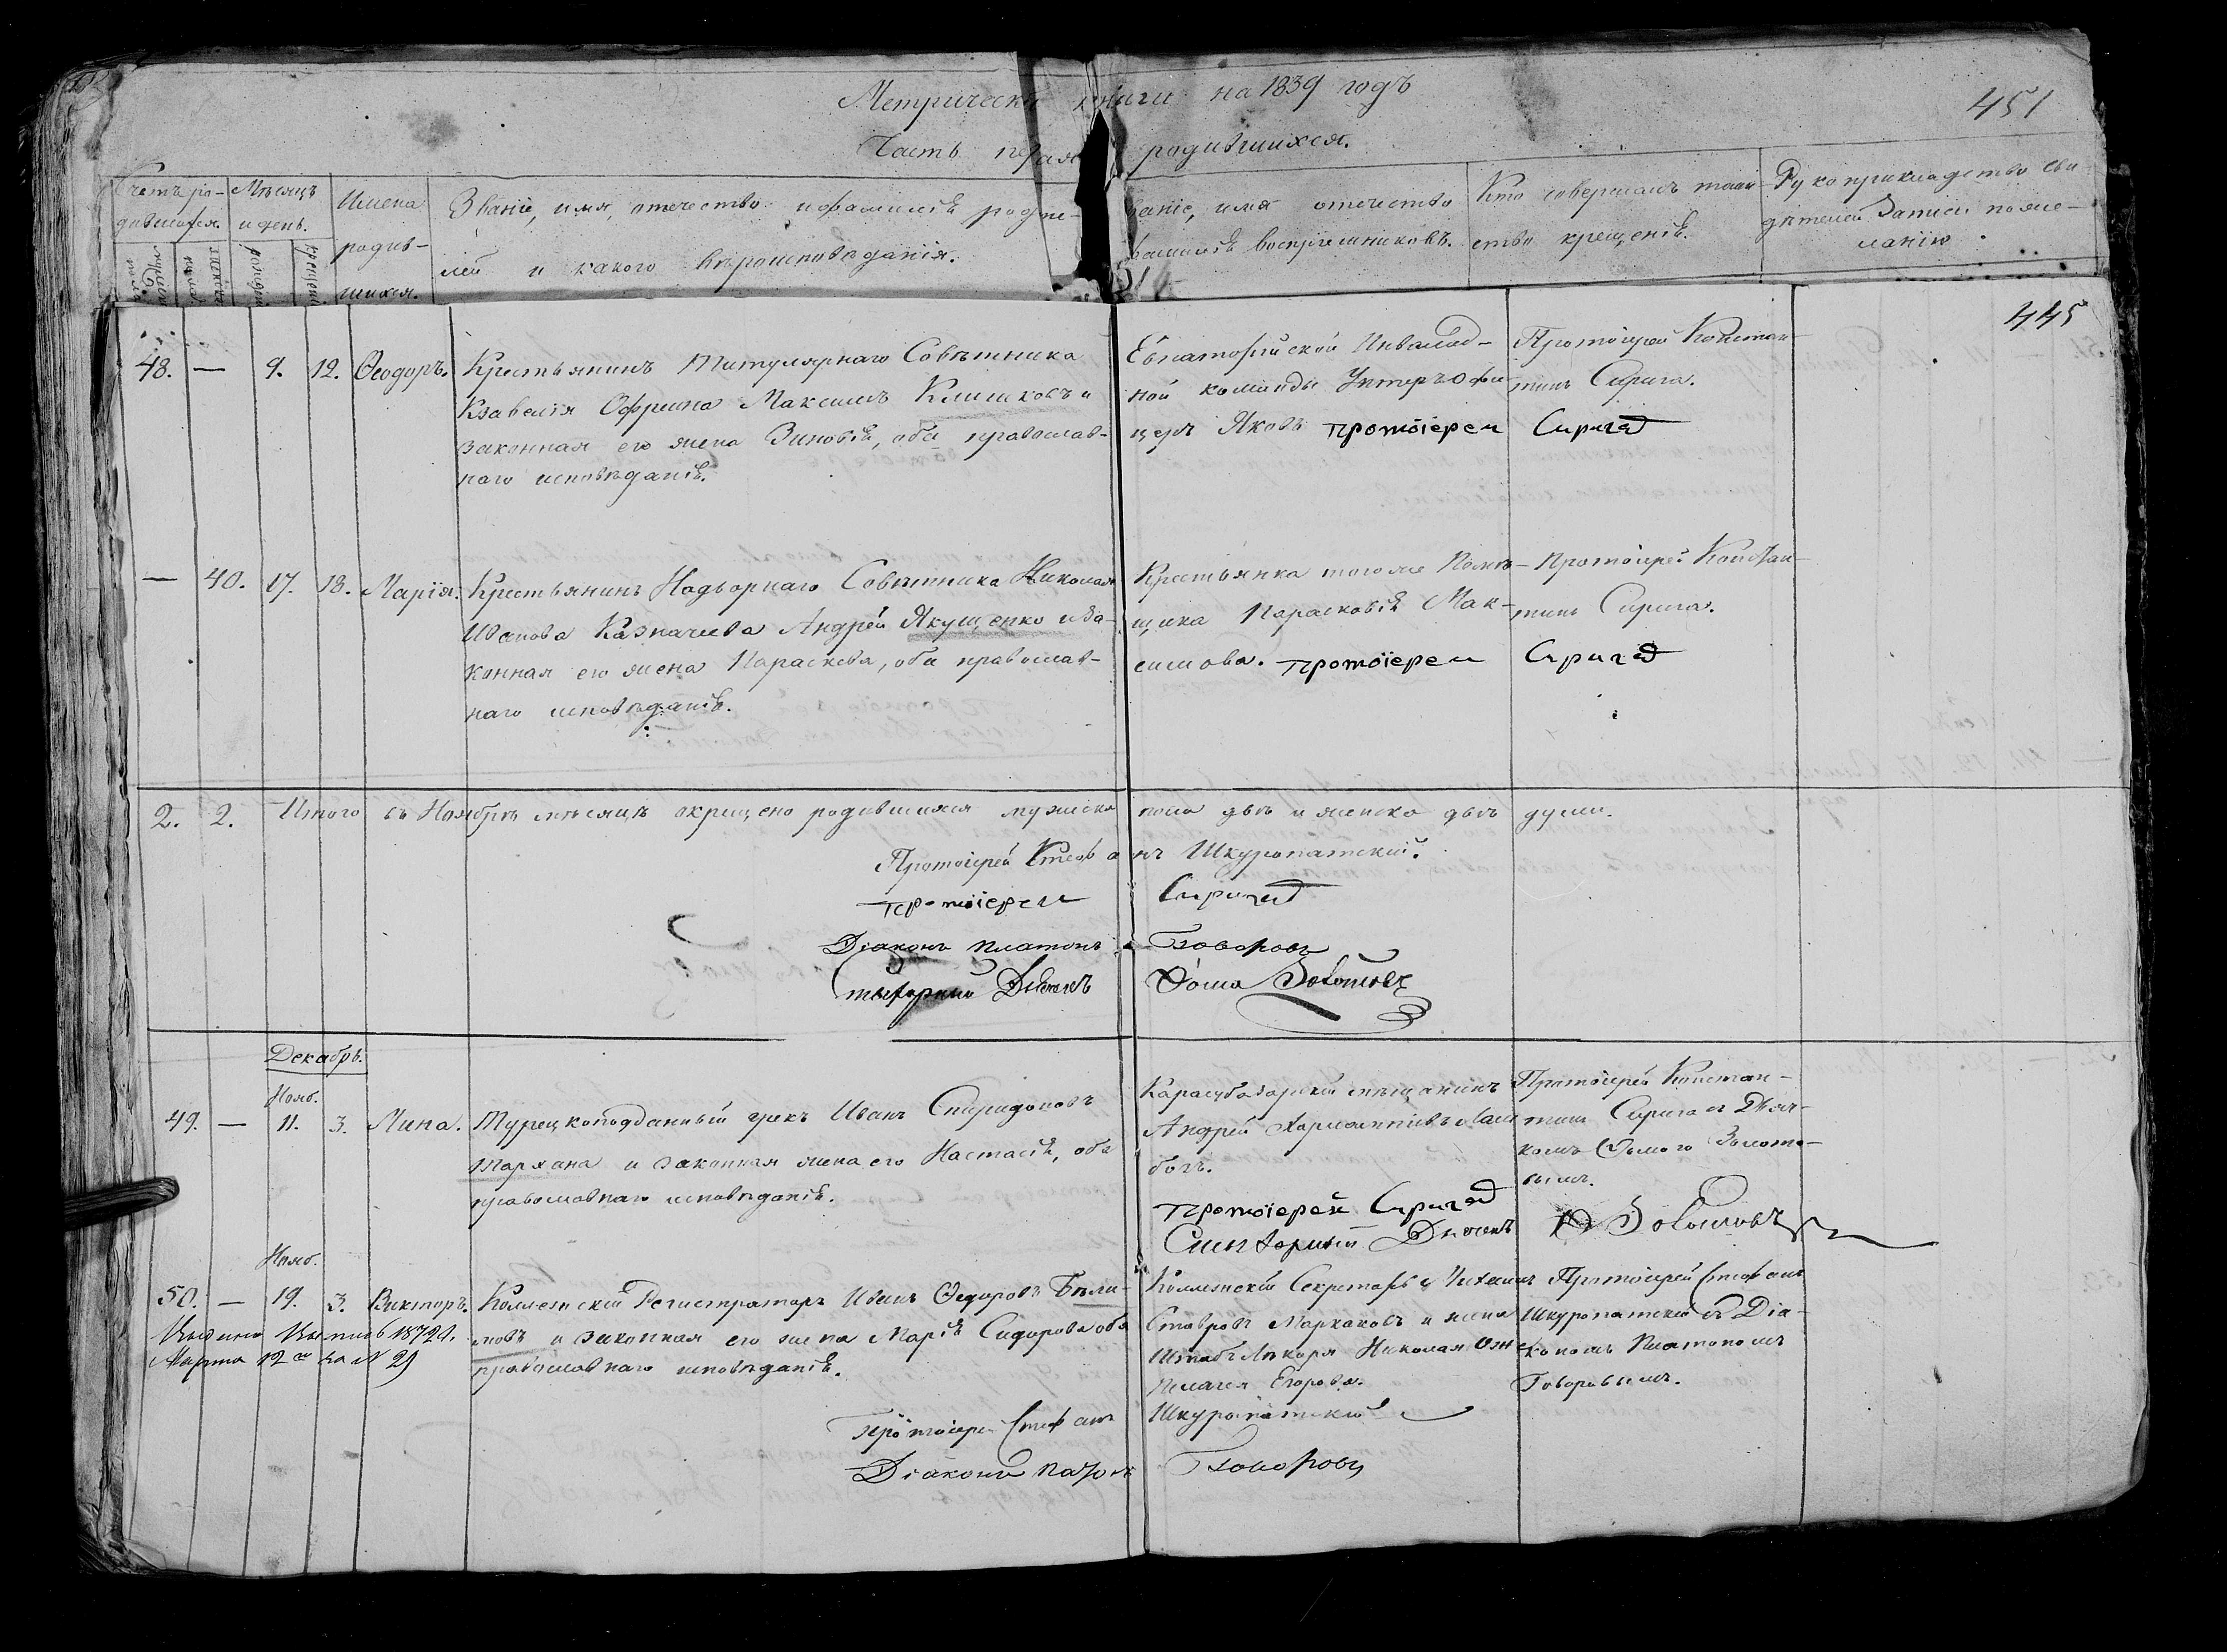 Метрической книги на 1839 годъ
451
Часть первая родившихся.
Счетъ ро-
дившихся.
Мѣсяцъ
и день.
Имена
родив-
шихся.
Званіе, имя, отечество и фамилія родите-
лей и какого вѣроисповѣданія.
Званіе, имя отечество
фамилія воспріемниковъ.
Кто совершалъ таин-
ство крещенія.
Рукоприкладство сви-
дѣтелей записи по же-
ланію.
445
48. — 9. 12. Ѳеодоръ.
Крестьянинъ Титулярнаго Совѣтника
Максимъ Климковъ и
законная его жена Зиновія, оба православ-
наго исповѣданія.
Евпаторійской Инвалид-
ной команды Унтеръ офи-
церъ Яковъ
протоіерей Сирига
Протоіерей Констан-
тинъ Сирига.
— 40. 17. 18. Марія.
Крестьянинъ Надворнаго Совѣтника Николая
Иванова Казначеева Андрей Якущенко и за-
конная его жена Параскева, оба православ-
наго исповѣданія.
Крестьянка того же Помѣ-
щика Парасковія Мак-
симова.
протоіерей Сирига
Протоіерей Констан-
тинъ Сирига.
2. 2. Итого въ Ноябрѣ мѣсяцѣ окрещено родившихся мужска пола двѣ и женска двѣ души.
Протоіерей Стефанъ Шкуропатскій.
протоіерей Сирига
Діаконъ Платонъ Говоровъ
Дьячекъ Ѳома Золотовъ
Декабрь.
Нояб.
49. — 11. 3. Мина.
Турецкоподданный грекъ Иванъ Спиридоновъ
Тархана и законная жена его Настасія, оба
православнаго исповѣданія.
Карасубазарскій мѣщанинъ
Андрей
протоіерей Сирига
Дьячекъ Ѳ Золотовъ
Протоіерей Констан-
тинъ Сирига съ Дьяч-
комъ Ѳомою Золото-
вымъ.
Нояб.
50. — 19. 3. Викторъ.
1872 г.
Марта 12 за N 29
Коллежскій Регистраторъ Иванъ Ѳедоровъ Бѣли-
ковъ и законная его жена Марія Сидорова оба
православнаго исповѣданія.
Коллежскій Секретарь Михаилъ
Ставровъ Маркаковъ и жена
Штабъ Лѣкаря Николая
Пелагея Егорова.
Протоіерей Стефанъ
Шкуропатскій съ Діа-
кономъ Платономъ
Говоровымъ.
Протоіерей Стефанъ Шкуропатскій
Діаконъ Платонъ Говоровъ